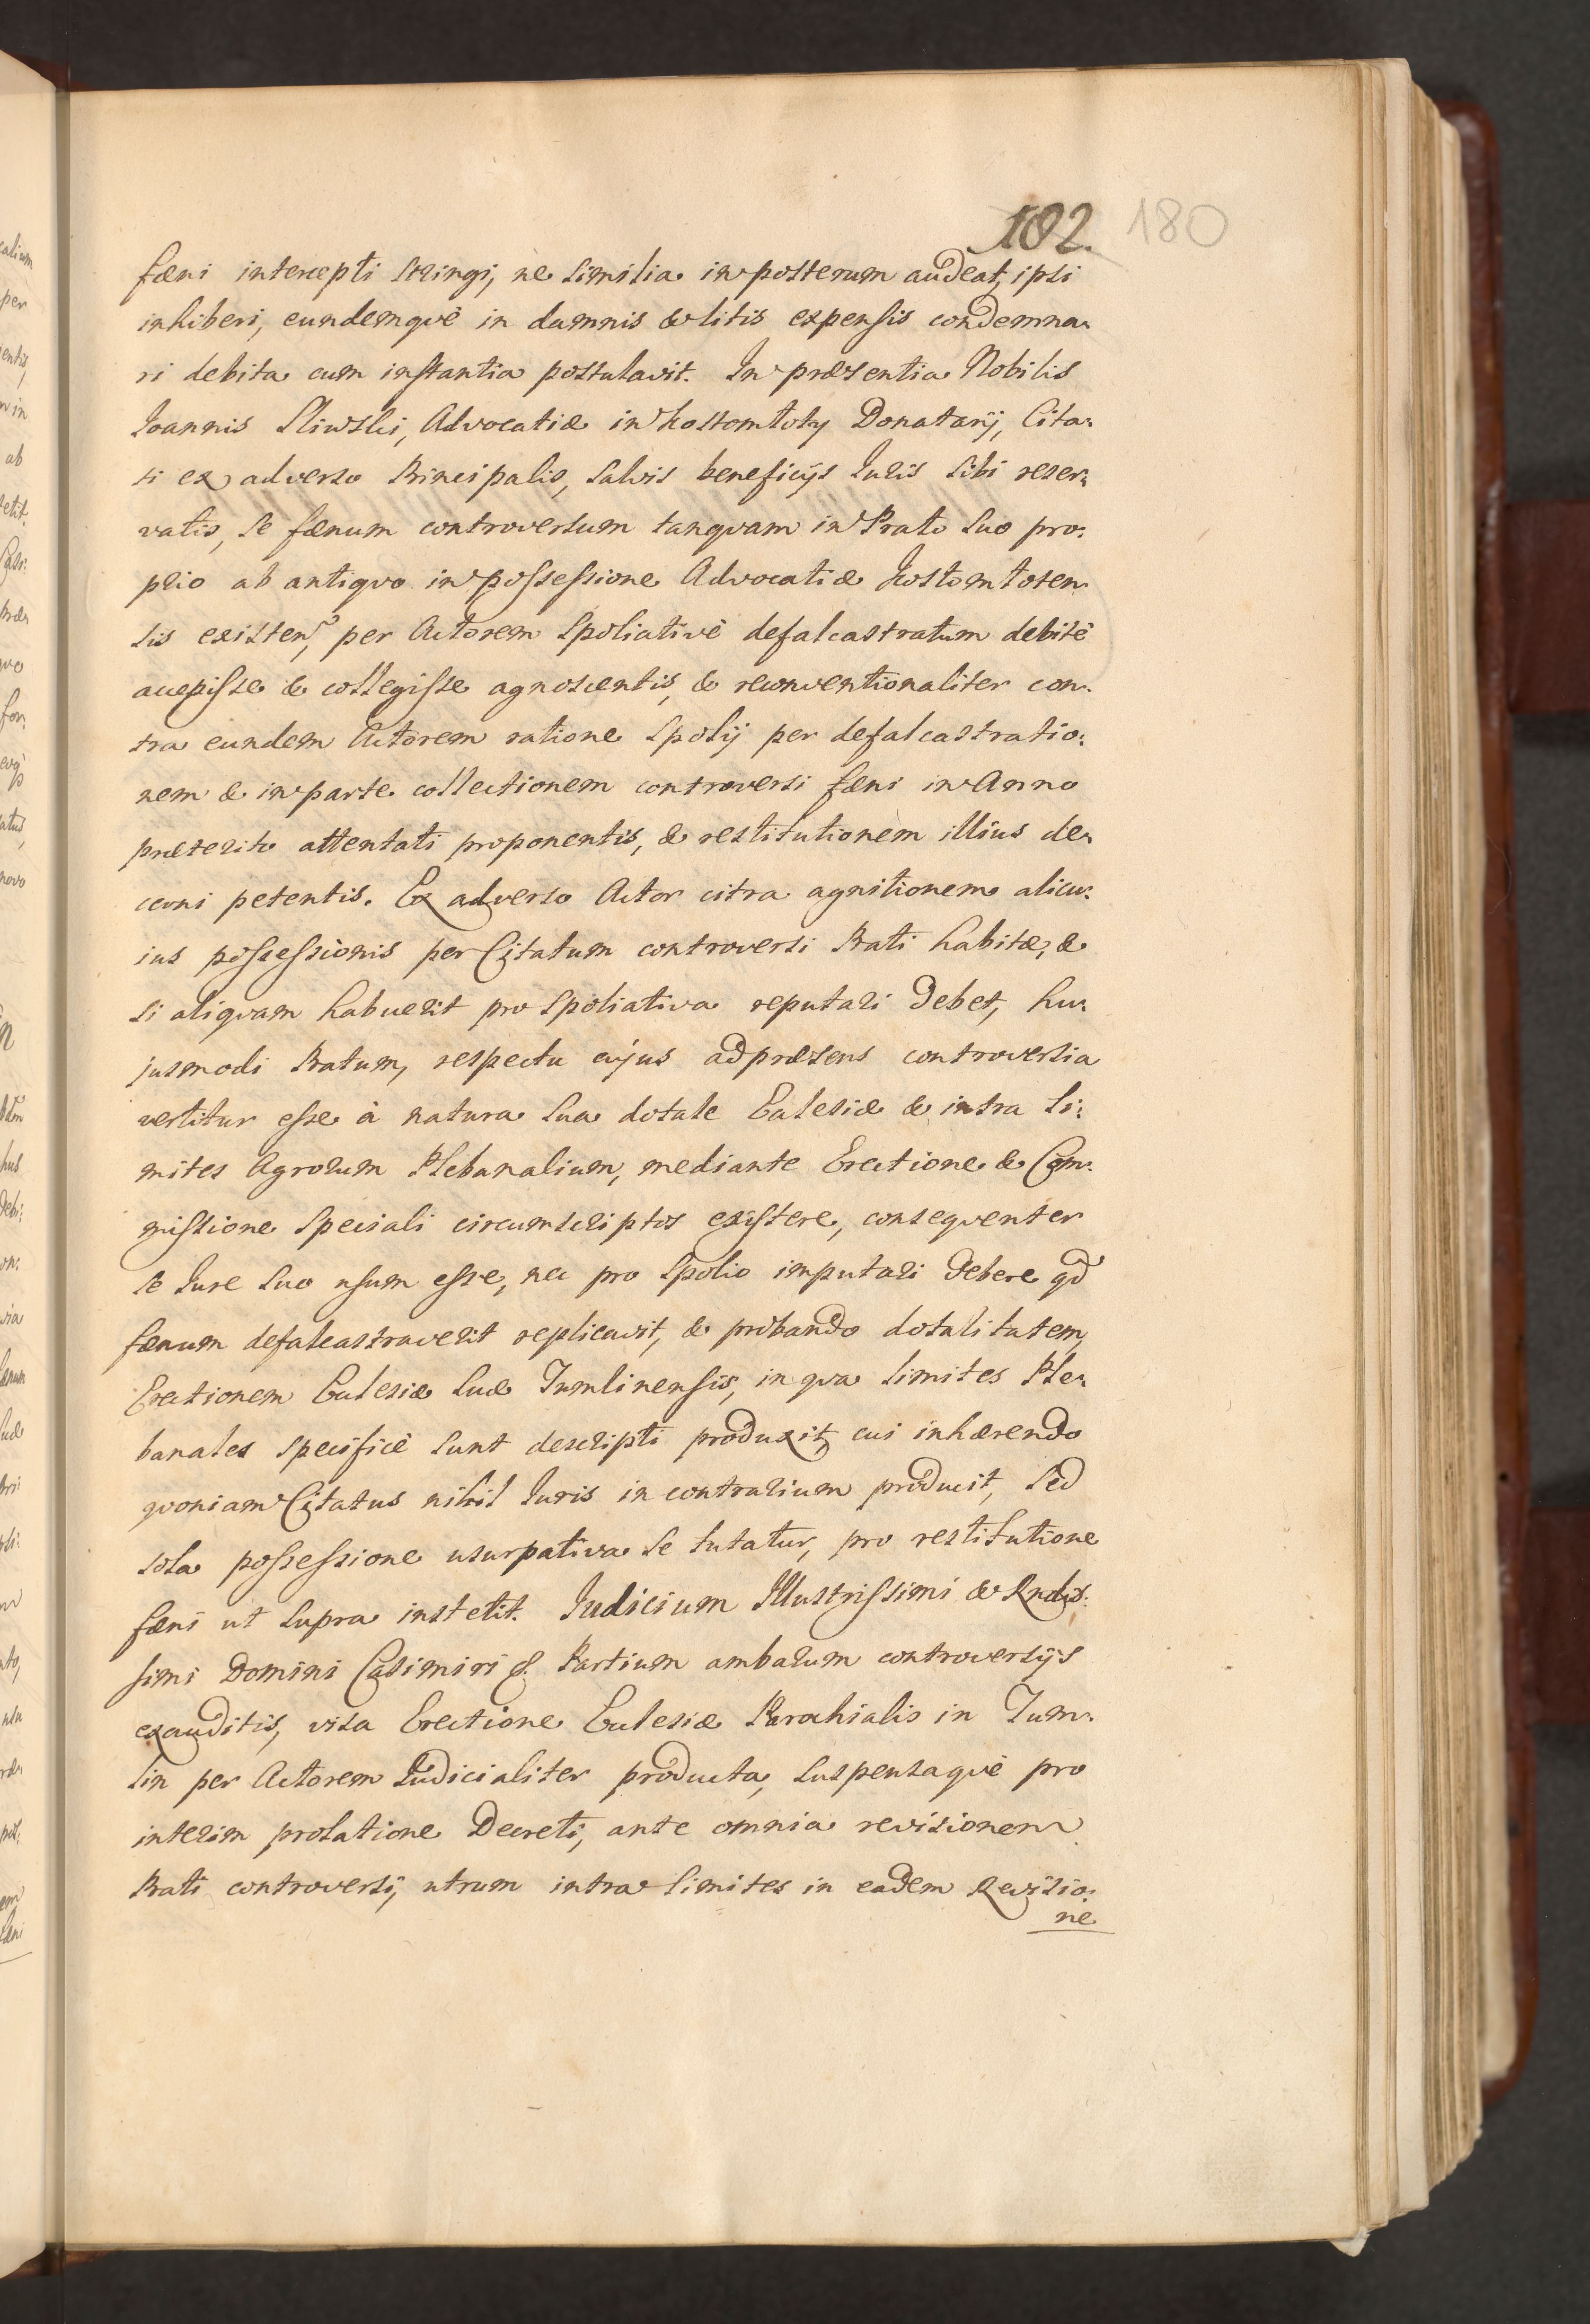 182. 180
fæni intercepti stringi, ne similia in posterum audeat, ipsi
inhiberi, eundemqvè in damnis & litis expensis condemna-
ri debita cum instantia postulavit. In præsentia Nobilis
Joannis Sliwski, Advocatiæ in Kostomłoty Donatarij, Cita-
ti ex adverso Principalis, salvis beneficijs Juris sibi reser-
vatis, se fænum controversum tanqvam in Prato suo pro-
prio ab antiqvo in possessione Advocatiæ Kostomłoten-
sis existen, per Actorem spoliativè defalcastratum debitè
accepisse & collegisse agnoscentis, & reconventionaliter con-
tra eundem Actorem ratione spolij per defalcastratio-
nem & in parte collectionem controversi fæni in Anno
præterito attentati proponentis, & restitutionem illius de-
cerni petentis. Ex adverso Actor citra agnitionem alicu-
ius possessionis per Citatum controversi Prati habitæ, &
si aliqvam habuerit pro spoliativa reputari debet, hu-
jusmodi Pratum, respectu cujus ad præsens controversia
vertitur esse à natura sua dotale Ecclesiæ & intra li-
mites Agrorum Plebanalium, mediante Erectione & Com-
missione speciali circumscriptos existere, conseqventer
se Jure suo usum esse, nec pro spolio imputari debere qd
fænum defalcastraverit replicavit, & probando dotalitatem,
Erectionem Ecclesiæ suæ Tumlinensis, in qva limites Ple-
banales specificè sunt descripti produxit, cui inhærendo
qvoniam Citatus nihil Juris in contrarium producit, sed
sola possessione usurpativa se tutatur, pro restitutione
fæni ut supra institit. Judicium Illustrissimi & Rndis-
simi Domini Casimiri &. Partium ambarum controversijs
exauditis, visa Erectione Ecclesiæ Parochialis in Tum-
lin per Actorem Judicialiter producta, suspensaqvè pro
interim prolatione Decreti, ante omnia revisionem
Prati controversi, utrum intra limites in eadem Revisio-
ne